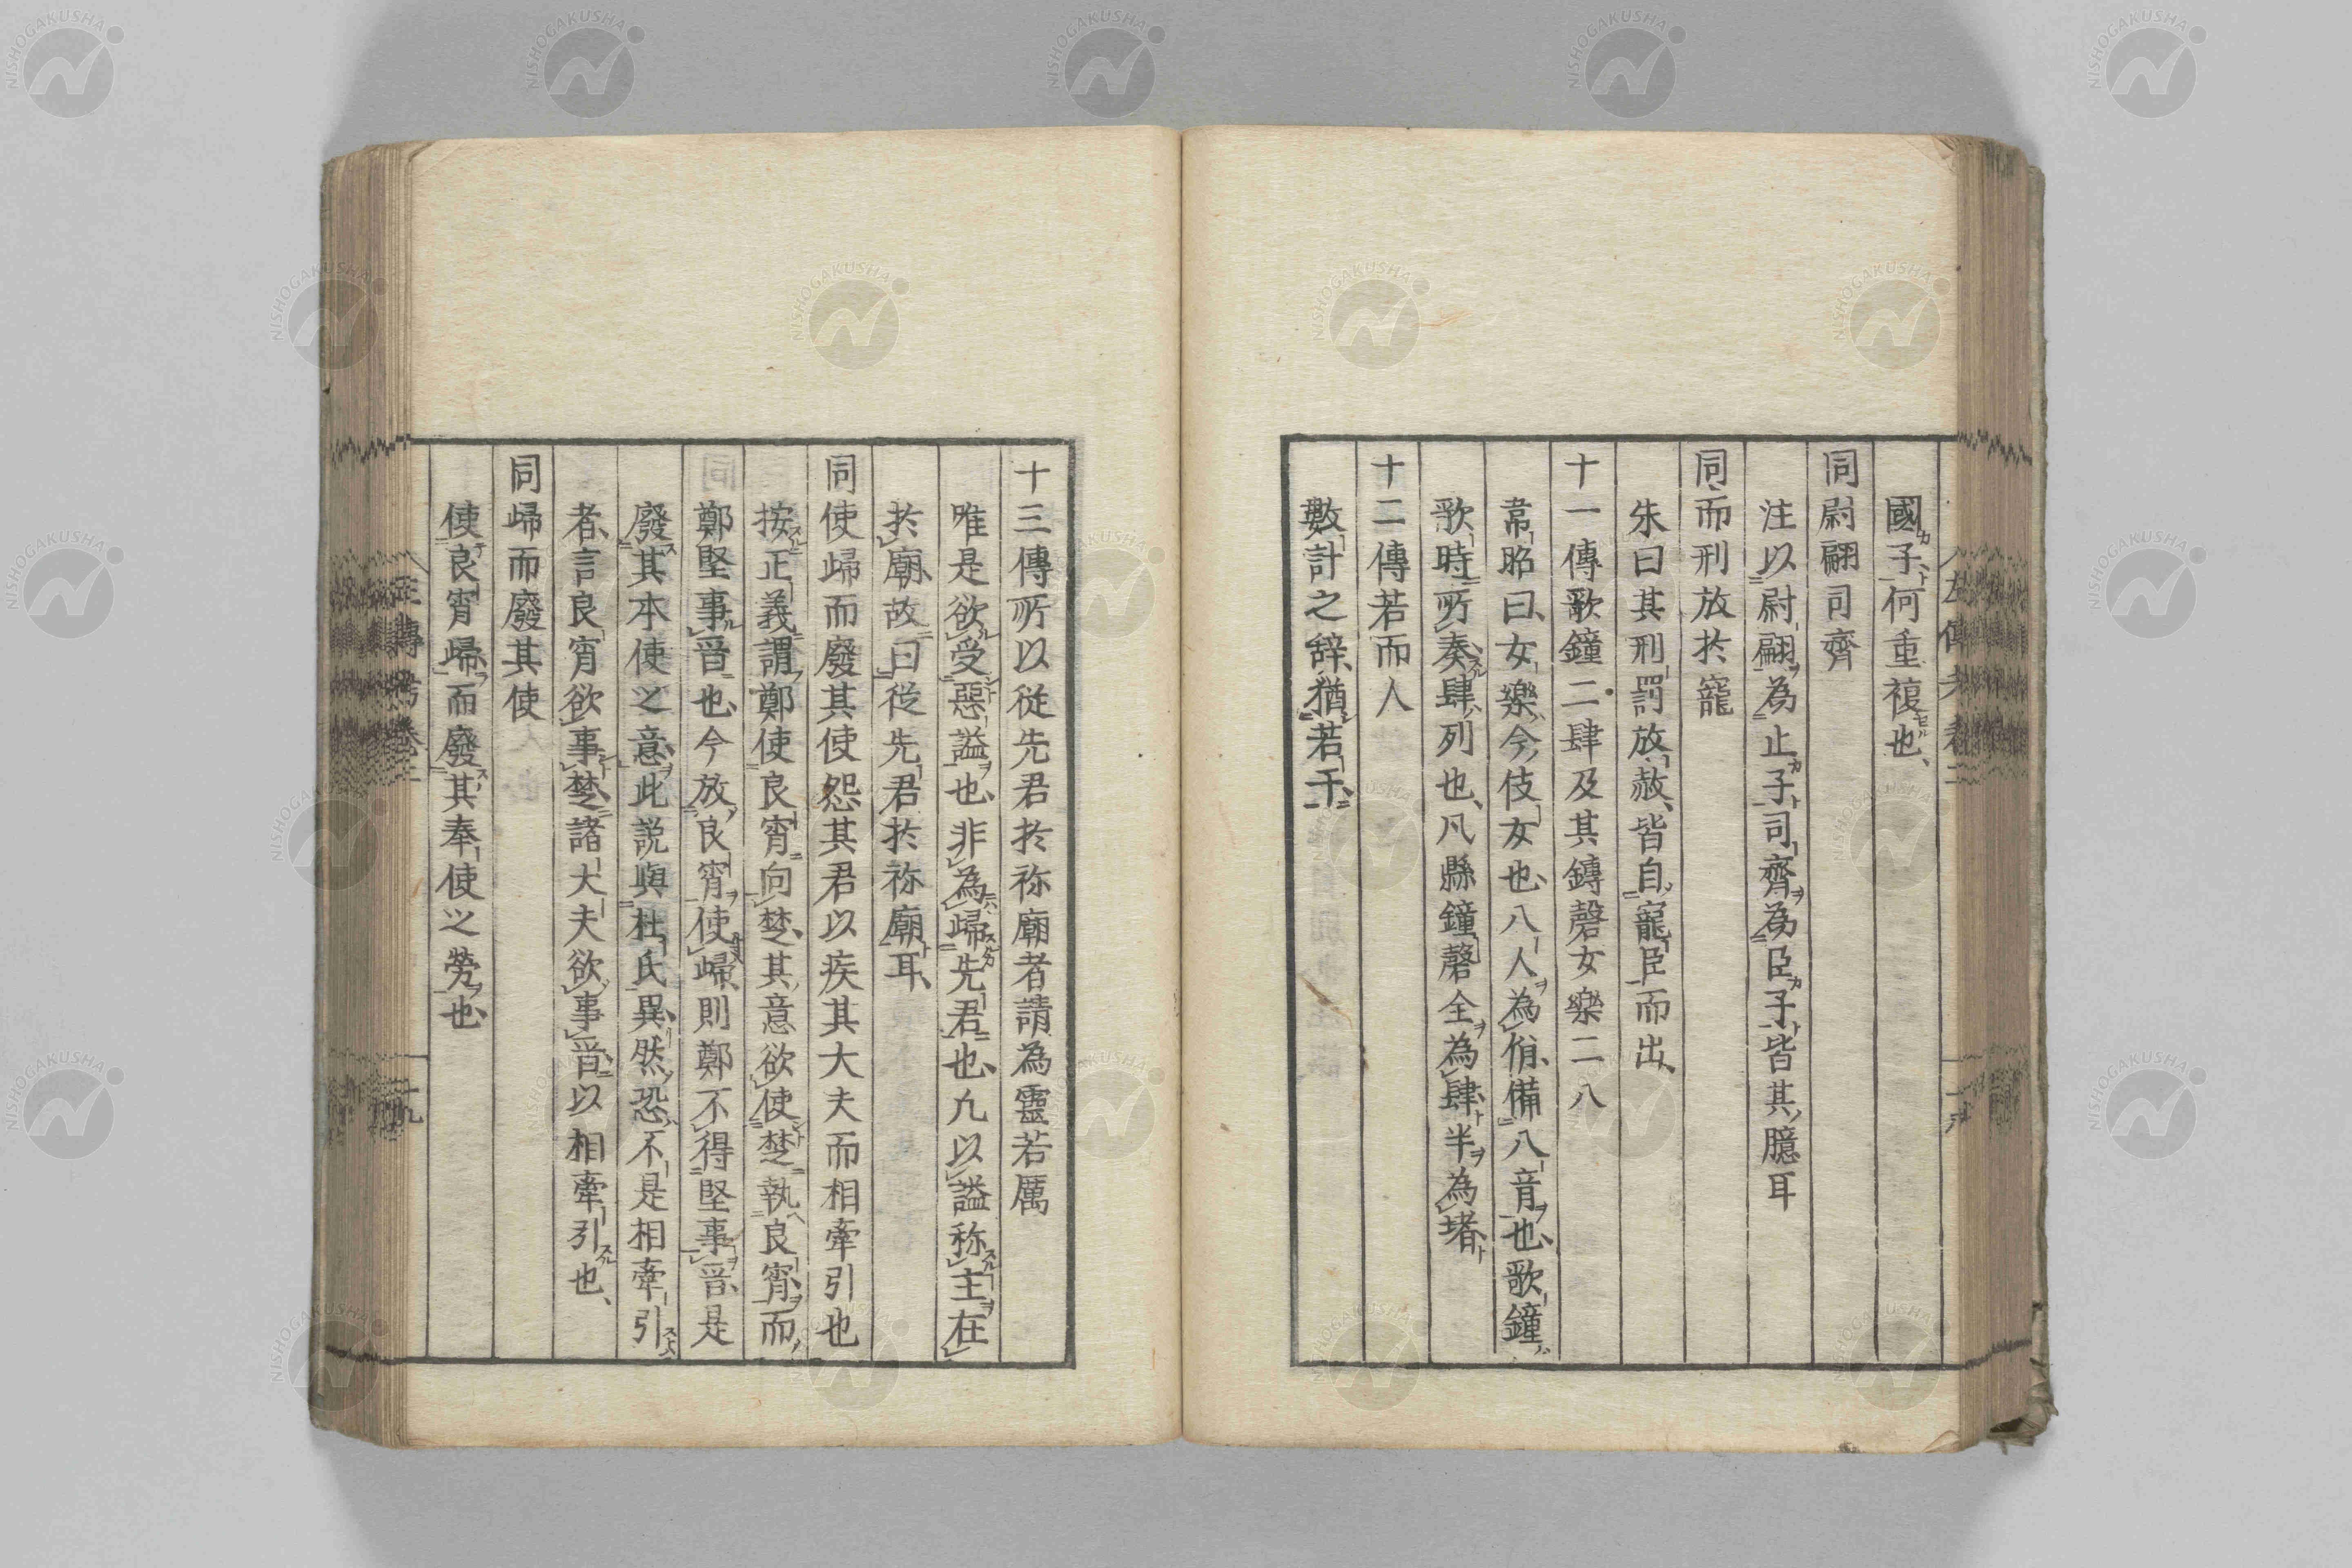 國子何重複也、
同尉翩司齊
注以尉翩為止子司齊為臣子皆其臆耳
同而刑放於寵
朱曰其刑罰放赦皆自寵臣而出、
十一傳歌鐘二肆及其鏄磬女樂二八
韋昭曰、女樂今伎女也、八人為佾、備八音也、歌鐘
歌時所奏肆列也、凡縣鐘磬全為肆半為堵
十二傳若而人
數計之辭、猶若干、
十三傳所以從先君於祢廟者請為靈若厲
唯是欲受惡謚也、非為歸先君也、凡以謚称主在
於廟、故曰從先君於祢廟耳、
同使歸而廢其使怨其君以疾其大夫而相牽引也
按正義謂鄭使良宵向楚、其意欲使楚執良宵而
鄭堅事晉也、今放良宵使歸、則鄭不得堅事晉、是
廢其本使之意、此説與杜氏異、然恐不是相牽引
者、言良宵欲事楚、諸大夫欲事晉以相牽引也、
同歸而廢其使
使良宵歸而廢其奉使之勞也、